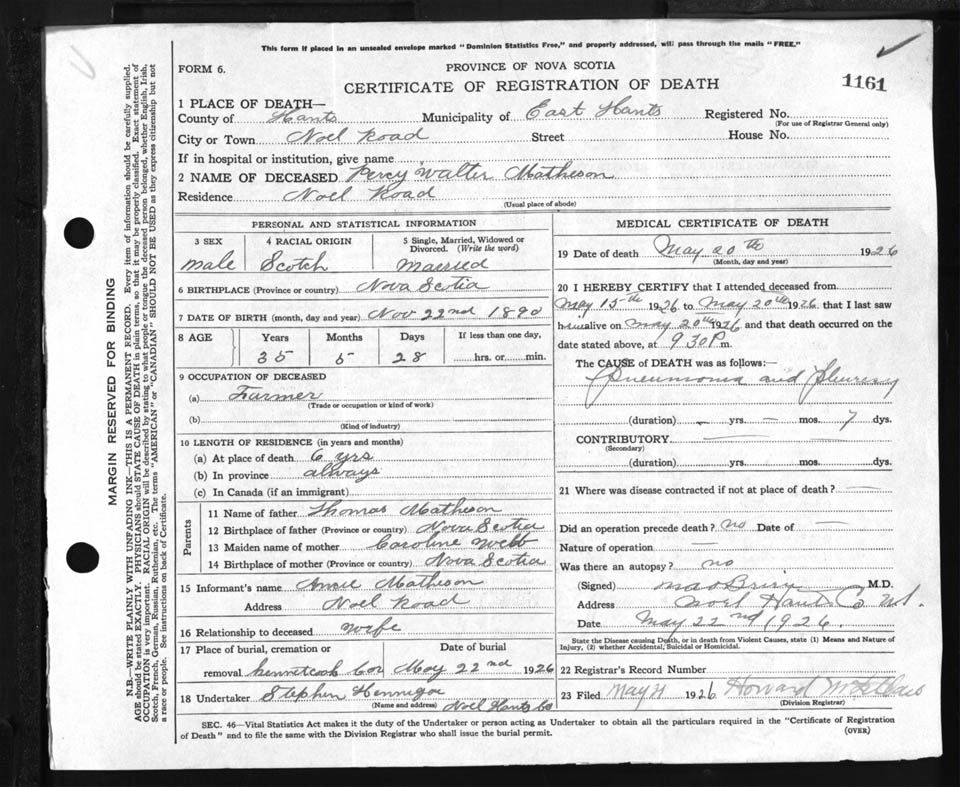 This form if placed in an unsealed envelope marked "Dominion Statistics Free," and properly addressed, will pass through the mails "FREE."
FORM 6.
PROVINCE OF NOVA SCOTIA
CERTIFICATE OF REGISTRATION OF DEATH
1161
1 PLACE OF DEATH—
County of Hants Municipality of East Hants Registered No.
(For use of Registrar General only)
City or Town Noel Road Street House No.
If in hospital or institution, give name
2 NAME OF DECEASED Percy Walter Matheson
Residence Noel Road
(Usual place of abode)
PERSONAL AND STATISTICAL INFORMATION
3 SEX 4 RACIAL ORIGIN 5 Single, Married, Widowed or Divorced. (Write the word)
Male Scotch Married
6 BIRTHPLACE (Province or country) Nova Scotia
7 DATE OF BIRTH (month, day and year) Nov 22nd 1890
8 AGE Years Months Days If less than one day,
35 5 28 hrs. or min.
9 OCCUPATION OF DECEASED
(a) Farmer
(Trade or occupation or kind of work)
(b)
(Kind of industry)
10 LENGTH OF RESIDENCE (in years and months)
(a) At place of death 6 yrs
(b) In province always
(c) In Canada (if an immigrant)
Parents
11 Name of father Thomas Matheson
12 Birthplace of father (Province or country) Nova Scotia
13 Maiden name of mother Caroline Webb
14 Birthplace of mother (Province or country) Nova Scotia
15 Informant's name Annie Matheson
Address Noel Road
16 Relationship to deceased Wife
17 Place of burial, cremation or Date of burial
removal Kennetcook Cor May 22nd 1926
18 Undertaker Stephen Hennigar
(Name and address) Noel Hants Co
MEDICAL CERTIFICATE OF DEATH
19 Date of death May 20th 1926
(Month, day and year)
20 I HEREBY CERTIFY that I attended deceased from
May 15th 1926 to May 20th 1926 that I last saw
him alive on May 20th 1926 and that death occurred on the
date stated above, at 9 30 P m.
The CAUSE of DEATH was as follows:—
Pneumonia and Pleurisy
(duration) — yrs. — mos. 7 dys.
CONTRIBUTORY — —
(Secondary)
(duration) yrs. mos. dys.
21 Where was disease contracted if not at place of death? —
Did an operation precede death? no Date of —
Nature of operation —
Was there an autopsy? no
(Signed) M.D.
Address Noel Hants Co N.S.
Date May 22nd 1926.
State the Disease causing Death, or in death from Violent Causes, state (1) Means and Nature of
Injury, (2) whether Accidental, Suicidal or Homicidal.
22 Registrar's Record Number
23 Filed May 21 1926 Howard
(Division Registrar)
SEC. 46—Vital Statistics Act makes it the duty of the Undertaker or person acting as Undertaker to obtain all the particulars required in the "Certificate of Registration
of Death" and to file the same with the Division Registrar who shall issue the burial permit.
(OVER)
MARGIN RESERVED FOR BINDING
N.B.—WRITE PLAINLY WITH UNFADING INK—THIS IS A PERMANENT RECORD. Every item of information should be carefully supplied.
AGE should be stated EXACTLY. PHYSICIANS should STATE CAUSE OF DEATH in plain terms, so that it may be properly classified. Exact statement of
OCCUPATION is very important. RACIAL ORIGIN will be described by stating to what people or tongue the deceased person belonged, whether English, Irish,
Scotch, French, German, Russian, Ruthenian, etc. The terms "AMERICAN" or "CANADIAN" SHOULD NOT BE USED as they express citizenship but not
a race or people. See instructions on back of Certificate.